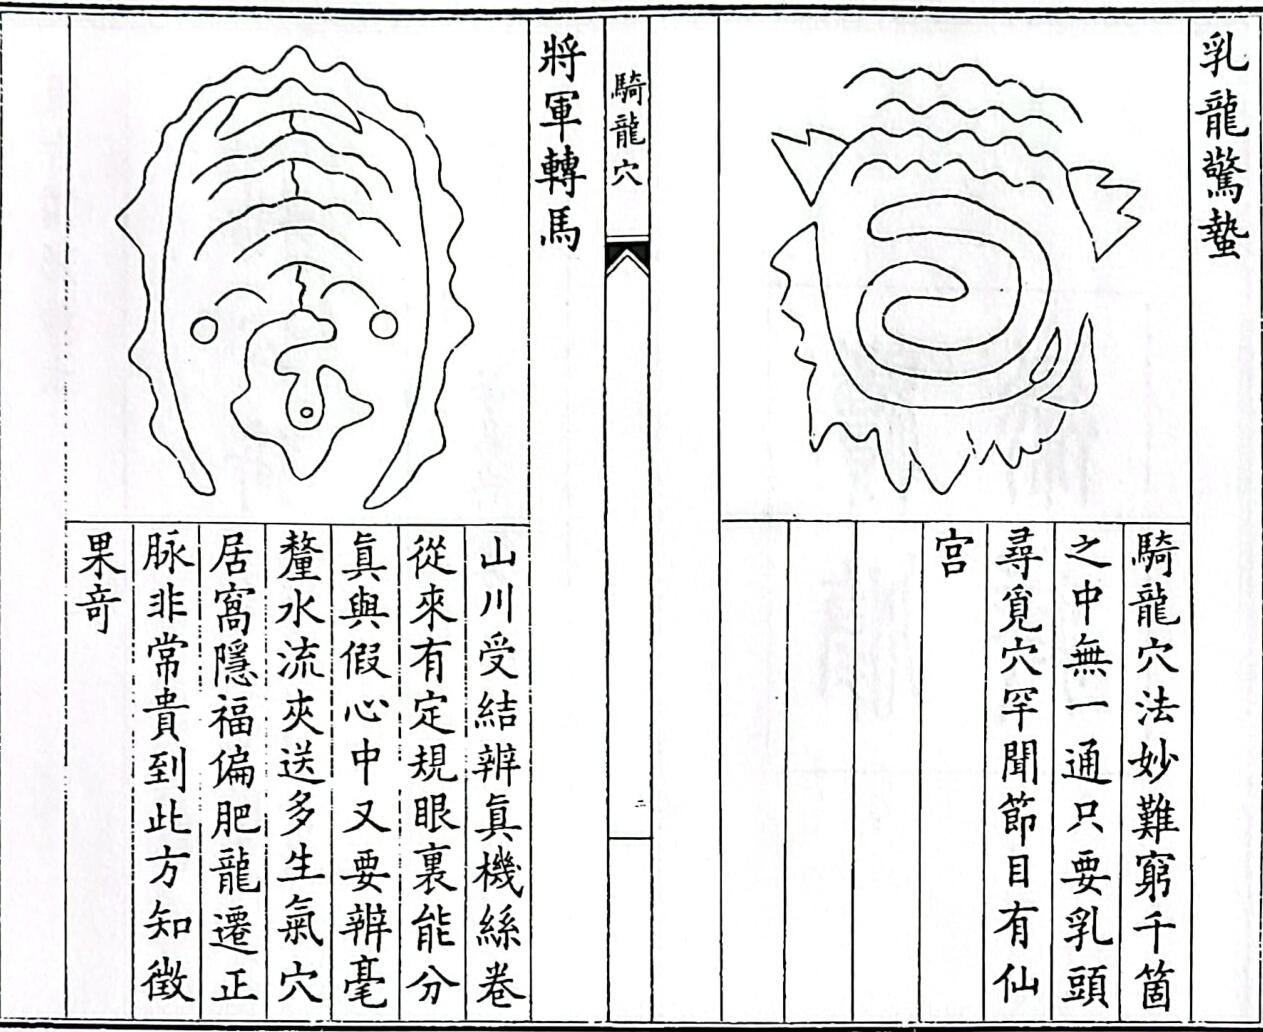 乳龍驚蟄
騎龍穴法妙難窮千箇
之中無一通只要乳頭
尋覓穴罕聞節目有仙
宫
騎龍穴
二
將軍轉馬
山川受結辨真機絲卷
從來有定規眼裏能分
真與假心中又要辨毫
釐水流夾送多生氣穴
居窩隱福偏肥龍遷正
脉非常貴到此方知徵
果奇